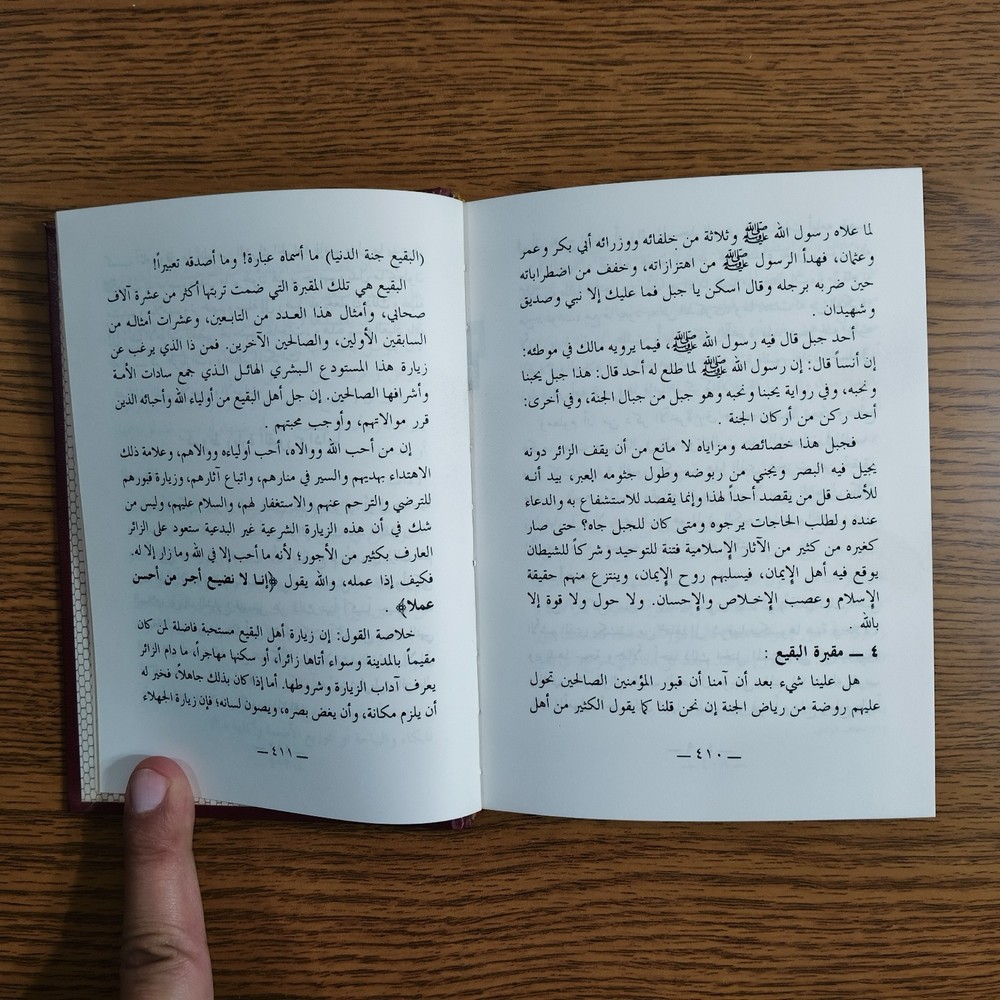 لما علاه رسول الله ﷺ وثلاثة من خلفائه ووزرائه أبي بكر وعمر
وعثمان، فهدأ الرسول ﷺ من اهتزازاته، وخفف من اضطراباته
حين ضربه برجله وقال اسكن يا جبل فما عليك إلا نبي وصديق
وشهيدان .
أحد جبل قال فيه رسول الله ﷺ، فيما يرويه مالك في موطئه:
إن أنساً قال: إن رسول الله ﷺ لما طلع له أحد قال: هذا جبل يحبنا
ونحبه، وفي رواية يحبنا ونحبه وهو جبل من جبال الجنة، وفي أخرى:
أحد ركن من أركان الجنة .
فجبل هذا خصائصه ومزاياه لا مانع من أن يقف الزائر دونه
يجيل فيه البصر ويجني من ربوضه وطول جثومه العبر، بيد أنه
للأسف قل من يقصد أحداً لهذا وإنما يقصد للاستشفاع به والدعاء
عنده ولطلب الحاجات يرجوه ومتى كان للجبل جاه؟ حتى صار
كغيره من كثير من الآثار الإسلامية فتنة للتوحيد وشركاً للشيطان
يوقع فيه أهل الإيمان، فيسلبهم روح الإيمان، وينتزع منهم حقيقة
الإسلام وعصب الإخلاص والإحسان. ولا حول ولا قوة إلا
بالله .
٤ ـــ مقبرة البقيع :
هل علينا شيء بعد أن آمنا أن قبور المؤمنين الصالحين تحول
عليهم روضة من رياض الجنة إن نحن قلنا كما يقول الكثير من أهل
ـــ ٤١٠ ـــ
(البقيع جنة الدنيا) ما أسماه عبارة! وما أصدقه تعبيراً!
البقيع هي تلك المقبرة التي ضمت تربتها أكثر من عشرة آلاف
صحابي، وأمثال هذا العدد من التابعين، وعشرات أمثاله من
السابقين الأولين، والصالحين الآخرين. فمن ذا الذي يرغب عن
زيارة هذا المستودع البشري الهائل الذي جمع سادات الأمة
وأشرافها الصالحين. إن جل أهل البقيع من أولياء الله وأحبائه الذين
قرر موالاتهم، وأوجب محبتهم .
إن من أحب الله ووالاه، أحب أولياءه ووالاهم، وعلامة ذلك
الاهتداء بهديهم والسير في منارهم، واتباع آثارهم، وزيارة قبورهم
للترضي والترحم عنهم والاستغفار لهم، والسلام عليهم، وليس من
شك في أن هذه الزيارة الشرعية غير البدعية ستعود على الزائر
العارف بكثير من الأجور؛ لأنه ما أحب إلا في الله وما زار إلا له.
فكيف إذا عمله، والله يقول ﴿إنا لا نضيع أجر من أحسن
عملا﴾ .
خلاصة القول: إن زيارة أهل البقيع مستحبة فاضلة لمن كان
مقيماً بالمدينة وسواء أتاها زائراً، أو سكنها مهاجراً، ما دام الزائر
يعرف آداب الزيارة وشروطها. أما إذا كان بذلك جاهلاً، فخير له
أن يلزم مكانة، وأن يغض بصره، ويصون لسانه؛ فإن زيارة الجهلاء
ـــ ٤١١ ـــ